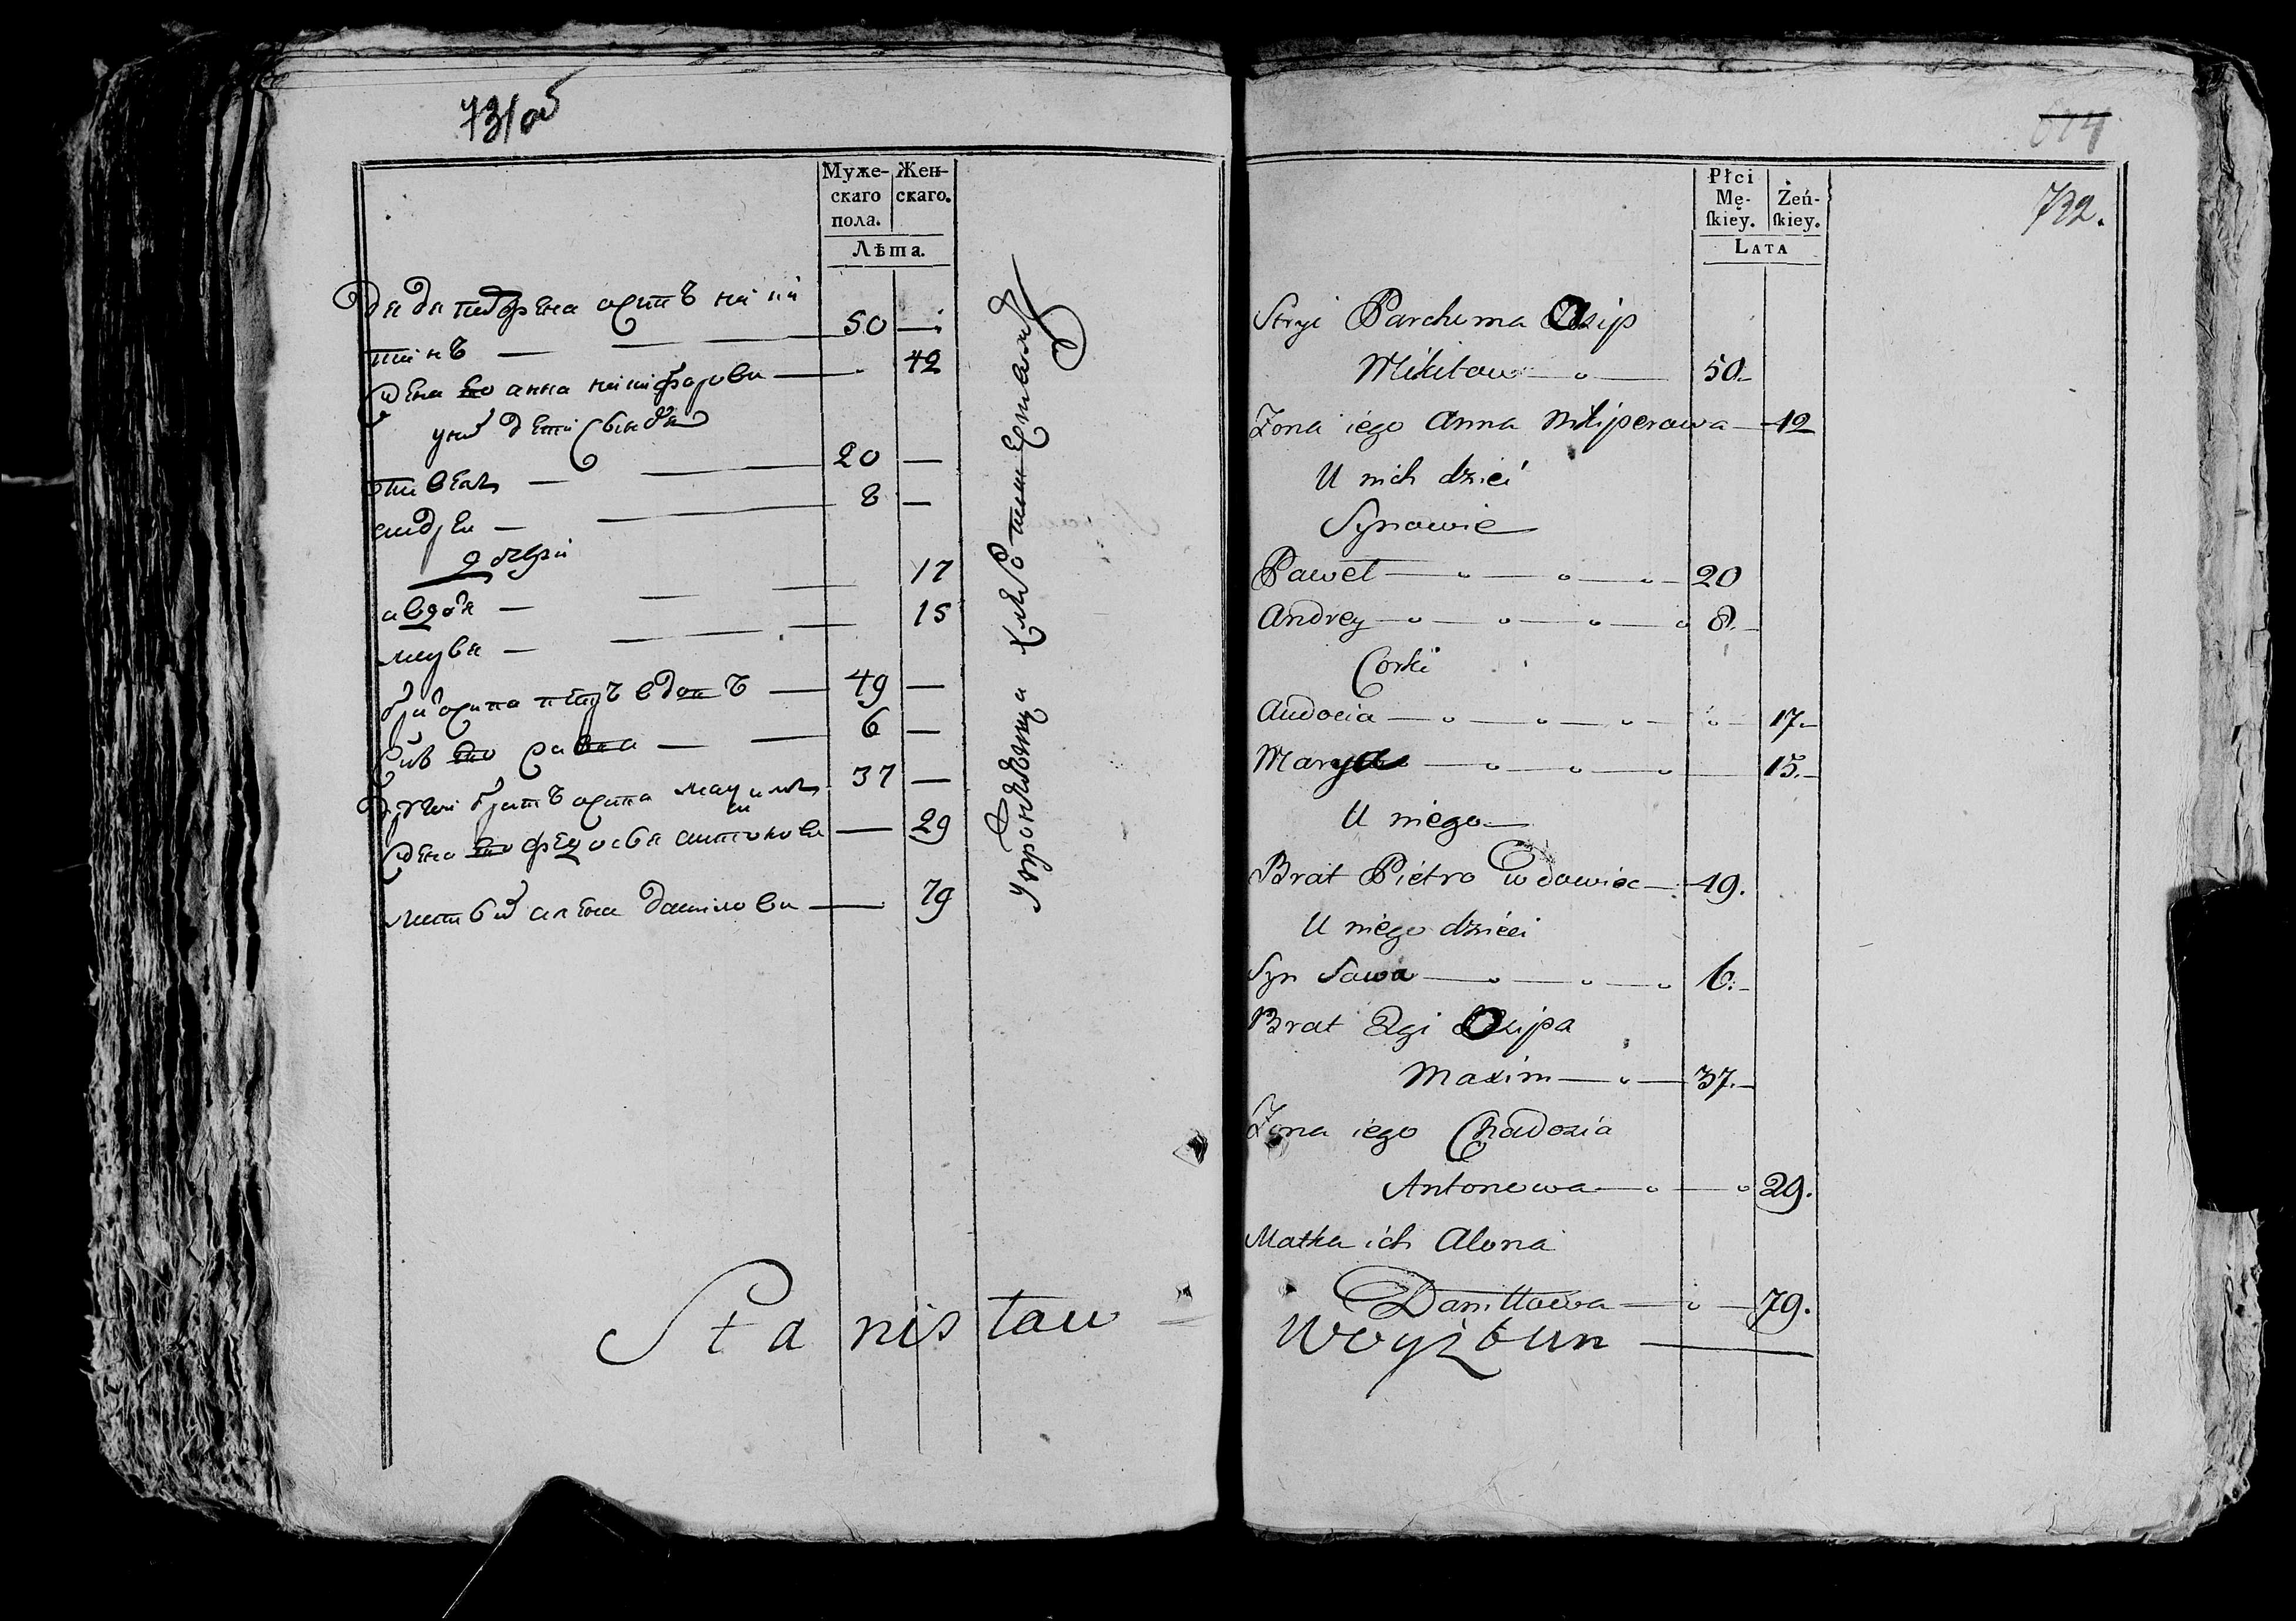 731об
Муже-
скаго
пола.
Жен-
скаго.
Лѣта.
дядя пархвена осипъ ники
тинъ — 50 —
жена ево анна никифорова — 42
у них дети сыновя
павел — 20 —
андреи — 8 —
дочери
авдотя — 17
марья — 15
брат осипа петръ вдовъ — 49 —
сын ево савва — 6 —
другой братъ осипа максим 37 —
жена ево федосья антонова — 29
мать их алена данилова — 79
Stanisław
614
732.
Płci
Mę-
skiey.
Żeń-
skiey.
LATA
Stryi Parchima Osip
Mikitow — 50.
Zona iego Anna Nikiperowa — 42
U nich dzieci
Synowie
Paweł — 20
Andrey — 8.
Corki
Audocia — 17.
Marya — 15.
U niego
Brat Piétro wdowiec — 49.
U niégo dziéci
Syn Sawa — 6.
Brat 2gi Osipa
Maxim — 37.
Zona iego Chadozia
Antonowa — 29.
Matka ich Alona
Daniłłowa — 79.
Woyzbun